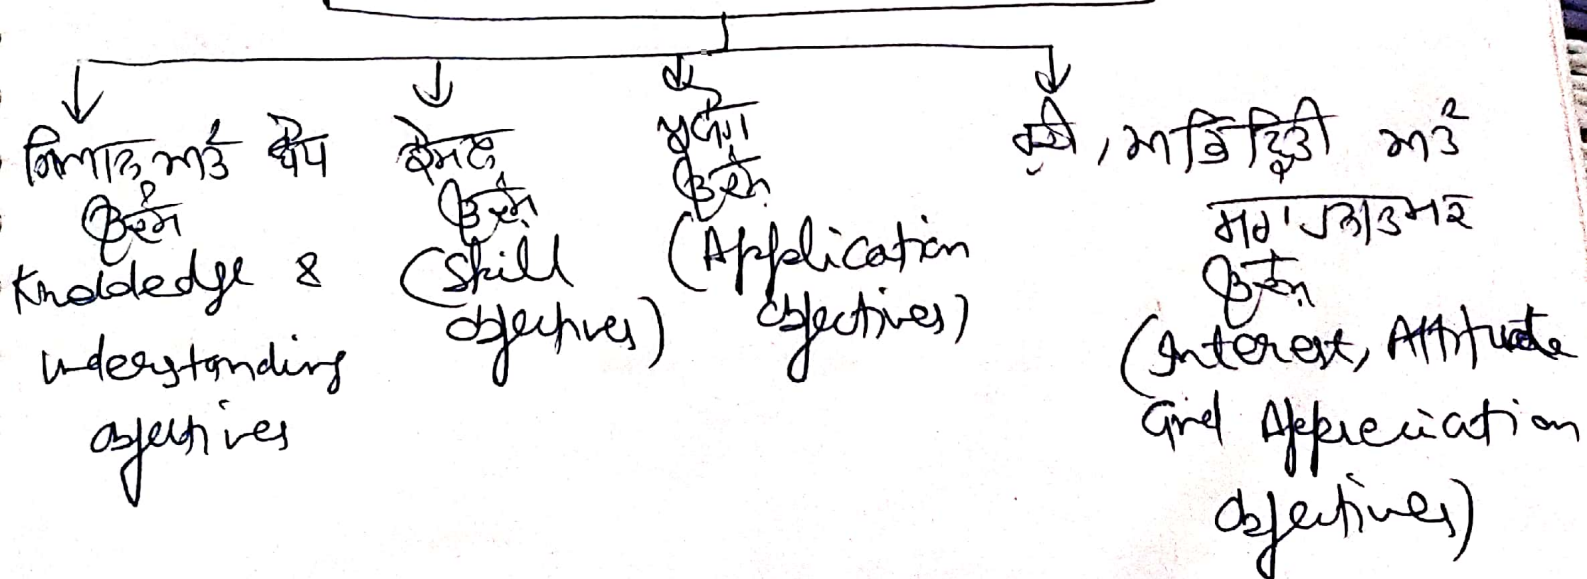 ਗਿਆਨ ਅਤੇ ਬੋਧ
ਉਦੇਸ਼
Knowledge &
understanding
objectives
ਕੌਸ਼ਲ
ਉਦੇਸ਼
(Skill
objectives)
ਪ੍ਰਯੋਗ
ਉਦੇਸ਼
(Application
objectives)
ਰੁਚੀ, ਅਭਿਵ੍ਰਿਤੀ ਅਤੇ
ਉਦੇਸ਼
(Interest, Attitude
and Appreciation
objectives)